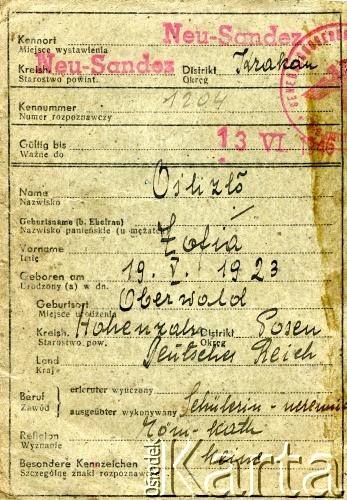 Kennort Neu-Sandez
Miejsce wystawienia
Kreish. Neu-Sandez Distrikt Krakau
Starostwo powiat. Okręg
Kennummer 1204
Numer rozpoznawczy
Gültig bis 13 VI.
Ważne do
Name Oslizlō
Nazwisko
Geburtsname (b. Ehefrau)
Nazwisko panieńskie (u mężatek)
Vorname Zofia
Imię
Geboren am 19. V. 1923
Urodzony (a) w dn.
Geburtsort Oberwald
Miejsce urodzenia
Kreish. Hohensalza Distrikt Posen
Starostwo pow. Okręg
Land Deutsches Reich
Kraj
Beruf erlernter wyuczony
Zawód ausgeübter wykonywany Schülerin - uczennica
Religion röm-kath
Wyznanie
Besondere Kennzeichen keine
Szczególne znaki rozpoznawcze
Ośrodek
Karta